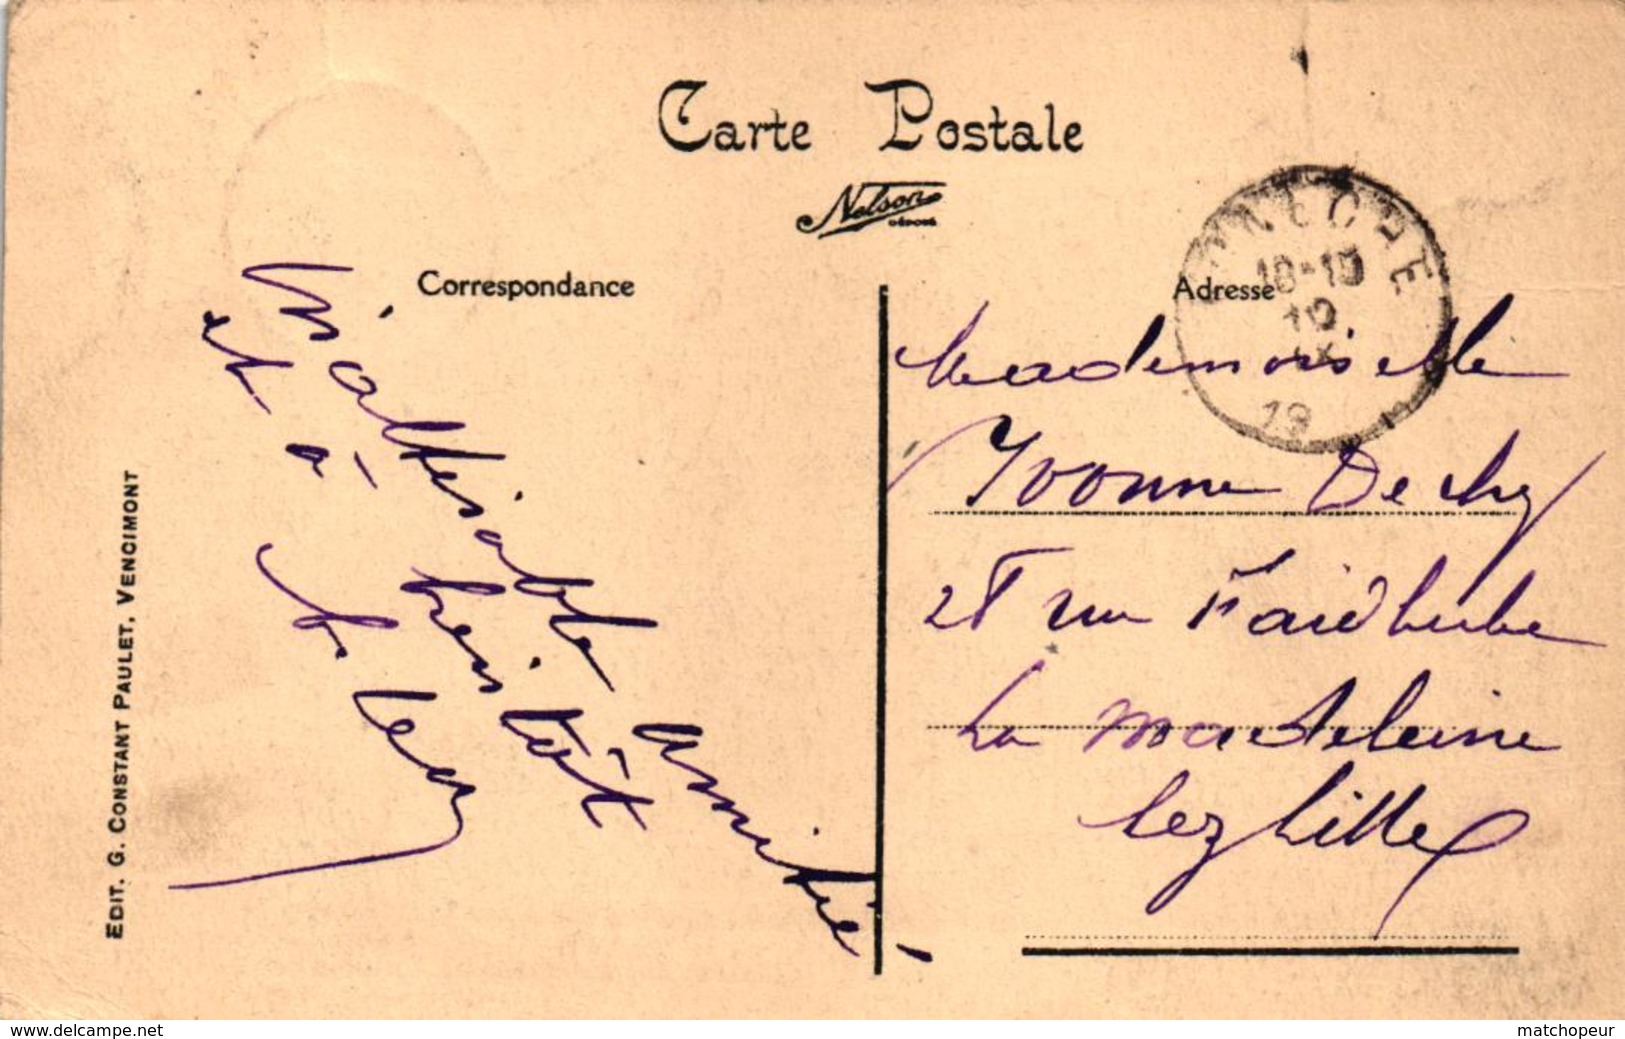 Carte Postale
Nelson
DÉPOSÉ
Correspondance
Adresse
18-19
19
Inaltérable amitié
et à bientôt
Mademoiselle
Yvonne Dechy
28 rue Faidherbe
La Madeleine
lez Lille
EDIT. G. CONSTANT PAULET, VENCIMONT
www.delcampe.net
matchopeur